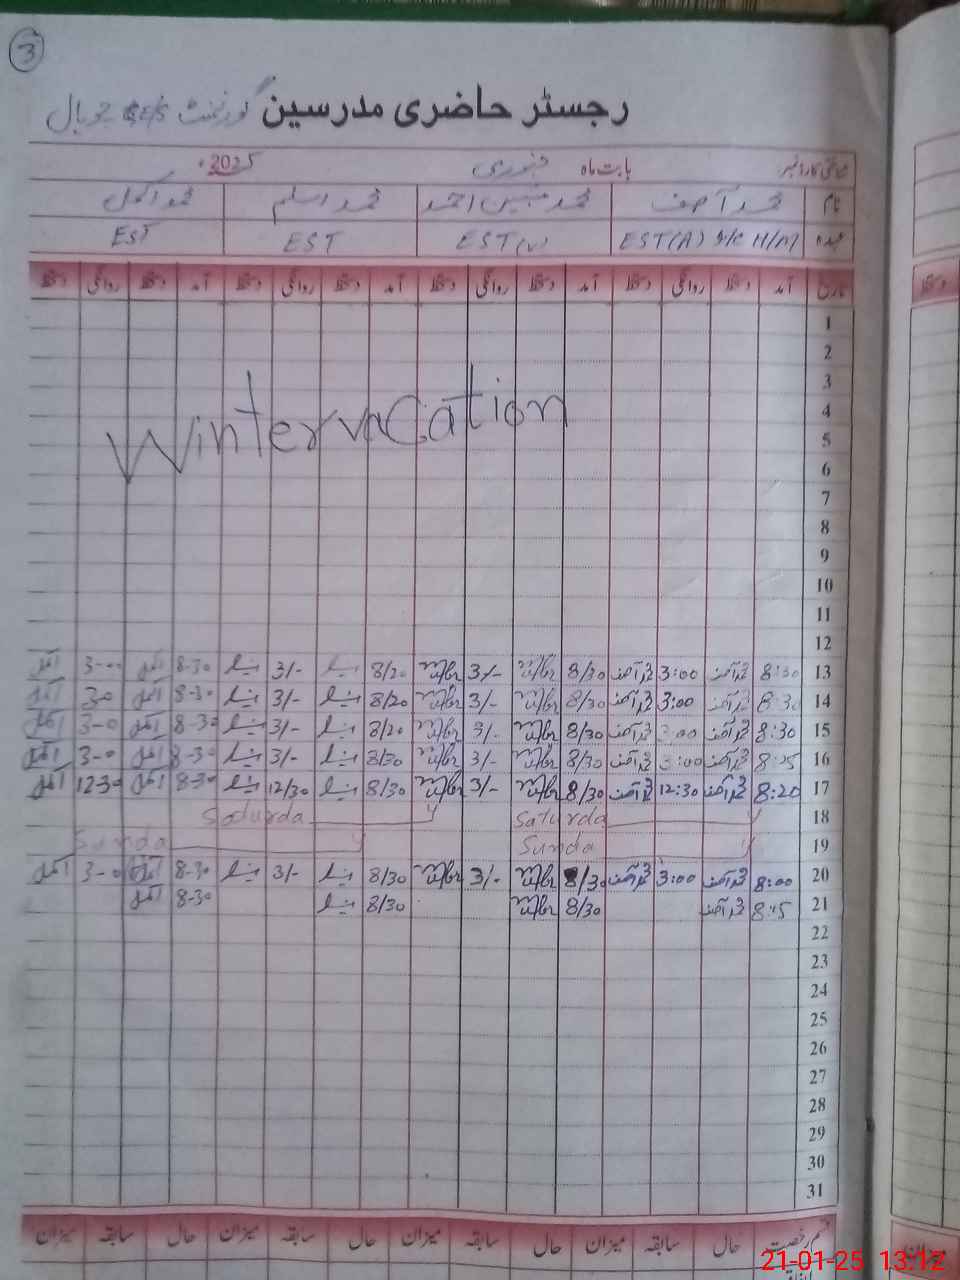 3
رجسٹر حاضری مدرسین گورنمنٹ
بابت ماہ جنوری 2025ء
نام محمد آصف محمد مبین احمد محمد اسلم محمد اکمل
عہدہ EST(A) I/C H/M EST(V) EST EST
تاریخ آمد دستخط روانگی دستخط آمد دستخط روانگی دستخط آمد دستخط روانگی دستخط آمد دستخط روانگی دستخط
1
2
3
Winter vacation
4
5
6
7
8
9
10
11
12
13 8:30 محمد آصف 3:00 محمد آصف 8/30 3/- 8/20 3/- 8-30 اکمل 3-00 اکمل
14 8:30 محمد آصف 3:00 محمد آصف 8/30 3/- 8/20 3/- 8-30 اکمل 30 اکمل
15 8:30 محمد آصف 3:00 محمد آصف 8/30 3/- 8/20 3/- 8-30 اکمل 3-0 اکمل
16 8:25 محمد آصف 3:00 محمد آصف 8/30 3/- 8/30 3/- 8-30 اکمل 3-0 اکمل
17 8:20 محمد آصف 12:30 محمد آصف 8/30 3/- 8/30 12/30 8-30 اکمل 12-30 اکمل
18 Saturday Saturday
19 Sunday Sunday
20 8:00 محمد آصف 3:00 محمد آصف 8/30 3/- 8/30 3/- 8-30 اکمل 3-0 اکمل
21 8:15 محمد آصف 8/30 8/30 8-30 اکمل
22
23
24
25
26
27
28
29
30
31
قسم رخصت حال سابقہ میزان حال سابقہ میزان حال سابقہ میزان حال سابقہ میزان
21-01-25 13:12